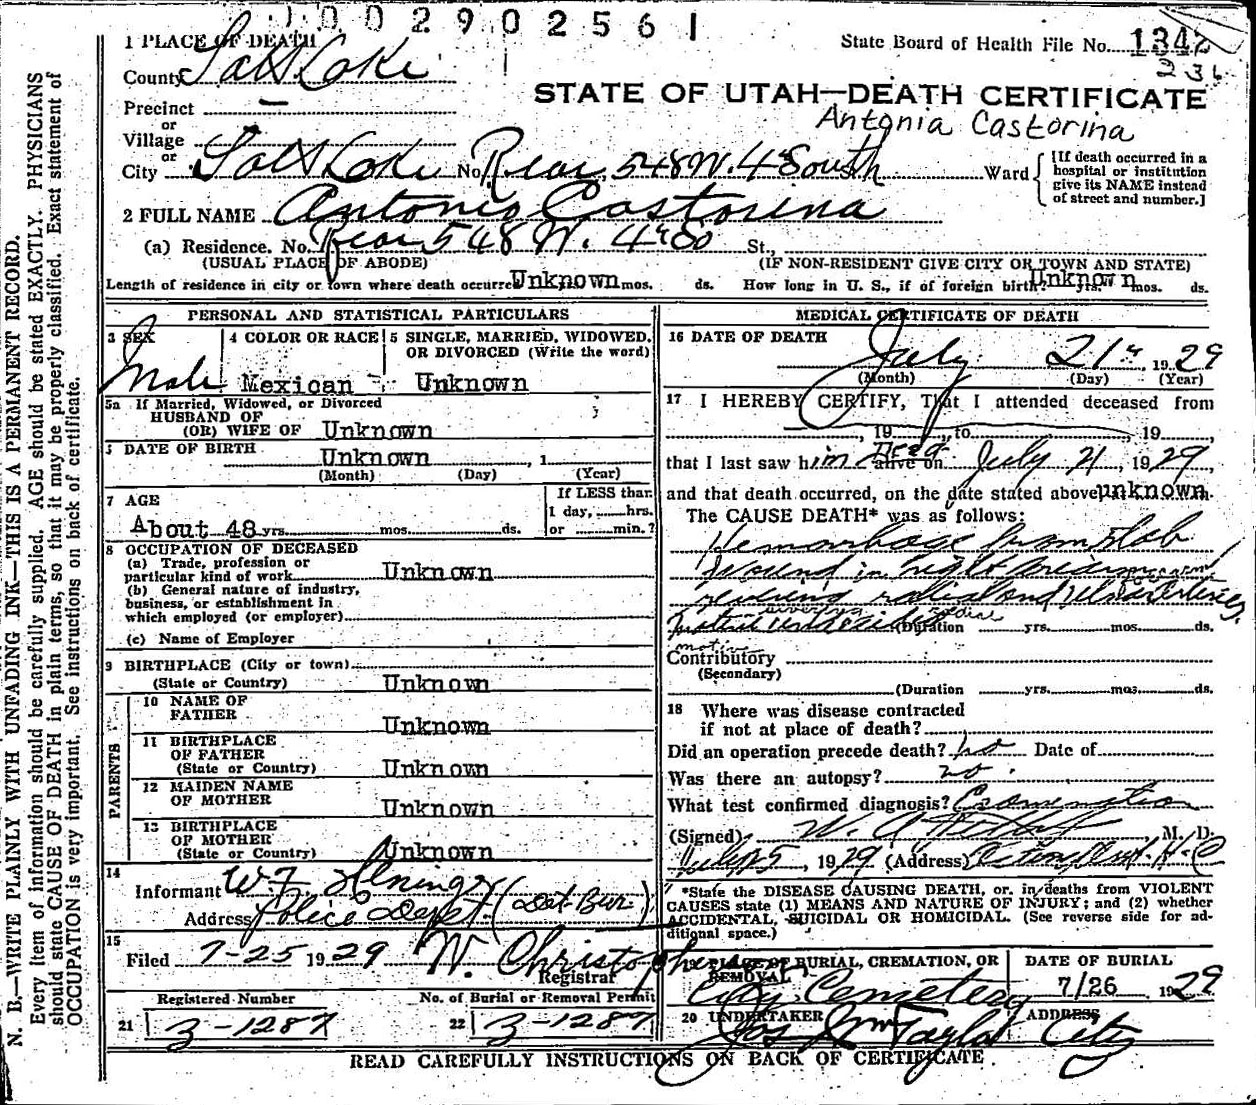 1002902561
1 PLACE OF DEATH
State Board of Health File No. 1342
236
County Salt Lake
STATE OF UTAH—DEATH CERTIFICATE
Precinct —
Antonia Castorina
or
Village
or
City Salt Lake No. Rear 548 W. 4th South Ward
[If death occurred in a
hospital or institution
give its NAME instead
of street and number.]
2 FULL NAME Antonio Castorina
(a) Residence. No. Rear 548 W. 4th So St.,
(USUAL PLACE OF ABODE) (IF NON-RESIDENT GIVE CITY OR TOWN AND STATE)
Length of residence in city or town where death occurred Unknown mos. ds. How long in U. S., if of foreign birth? Unknown yrs. mos. ds.
PERSONAL AND STATISTICAL PARTICULARS
3 SEX
Male
4 COLOR OR RACE
Mexican
5 SINGLE, MARRIED, WIDOWED,
OR DIVORCED (Write the word)
Unknown
5a If Married, Widowed, or Divorced
HUSBAND OF
(OR) WIFE OF Unknown
DATE OF BIRTH
Unknown , 1
(Month) (Day) (Year)
7 AGE
About 48 yrs. mos. ds.
If LESS than
1 day, hrs.
or min.?
8 OCCUPATION OF DECEASED
(a) Trade, profession or
particular kind of work Unknown
(b) General nature of industry,
business, or establishment in
which employed (or employer)
(c) Name of Employer
9 BIRTHPLACE (City or town)
(State or Country) Unknown
PARENTS
10 NAME OF
FATHER Unknown
11 BIRTHPLACE
OF FATHER
(State or Country) Unknown
12 MAIDEN NAME
OF MOTHER Unknown
13 BIRTHPLACE
OF MOTHER
(State or Country) Unknown
14
Informant W.F.
Address Police Dept. (Det. Bur.)
15
Filed 7-25 1929 W. Christopherson
Registrar
Registered Number No. of Burial or Removal Permit
21 3-1287 22 3-1287
MEDICAL CERTIFICATE OF DEATH
16 DATE OF DEATH
July 21st 1929
(Month) (Day) (Year)
17 I HEREBY CERTIFY, That I attended deceased from
, 19 , to , 19 ,
that I last saw him Dead alive on July 21, 1929,
and that death occurred, on the date stated above, unknown m.
The CAUSE DEATH* was as follows:
Hemorrhage from stab
wound in right forearm
radial and ulnar arteries
(Duration yrs. mos. ds.
motive
Contributory
(Secondary)
(Duration yrs. mos. ds.
18 Where was disease contracted
if not at place of death?
Did an operation precede death? no Date of
Was there an autopsy? no.
What test confirmed diagnosis? Examination
(Signed) W. A. , M. D.
July 25, 1929 (Address)
*State the DISEASE CAUSING DEATH, or in deaths from VIOLENT
CAUSES state (1) MEANS AND NATURE OF INJURY; and (2) whether
ACCIDENTAL, SUICIDAL OR HOMICIDAL. (See reverse side for ad-
ditional space.)
19 PLACE OF BURIAL, CREMATION, OR
REMOVAL
City Cemetery
DATE OF BURIAL
7/26 1929
20 UNDERTAKER
Jos. Wm Taylor
ADDRESS
City
READ CAREFULLY INSTRUCTIONS ON BACK OF CERTIFICATE
N. B.—WRITE PLAINLY WITH UNFADING INK—THIS IS A PERMANENT RECORD.
Every item of information should be carefully supplied. AGE should be stated EXACTLY. PHYSICIANS
should state CAUSE OF DEATH in plain terms, so that it may be properly classified. Exact statement of
OCCUPATION is very important. See instructions on back of certificate.